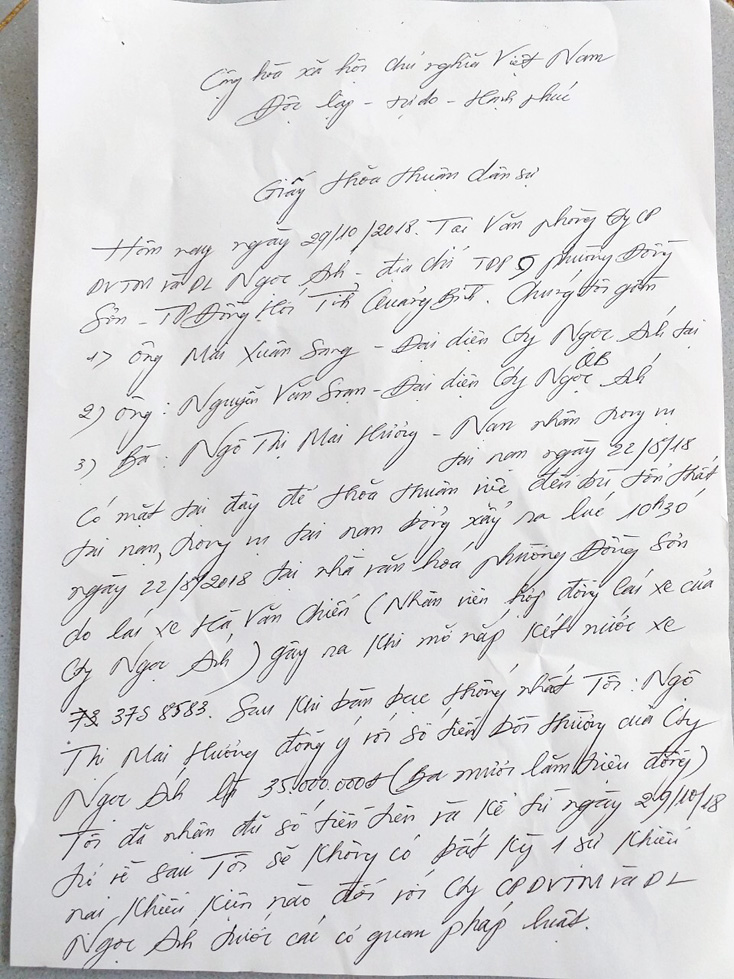 Cộng hòa xã hội chủ nghĩa Việt Nam
Độc lập - tự do - Hạnh phúc
Giấy thỏa thuận dân sự
Hôm nay ngày 29/10/2018. Tại Văn phòng Cty CP
DVTM và DL Ngọc Ánh - địa chỉ TDP 5 phường Đồng
Sơn - TP Đồng Hới Tỉnh Quảng Bình. Chúng tôi gồm
1) Ông Mai Xuân Sang - Đại diện Cty Ngọc Ánh tại
QB
2) Ông: Nguyễn Văn - Đại diện Cty Ngọc Ánh
3) Bà: Ngô Thị Mai Hường - Nạn nhân trong vụ
tai nạn ngày 22/8/18
Có mặt tại đây để thỏa thuận việc đền bù tổn thất
tai nạn, trong vụ tai nạn bỏng xẩy ra lúc 10h30'
ngày 22/8/2018 tại nhà văn hoá phường Đồng Sơn
do lái xe Hà Văn Chiến (Nhân viên hợp đồng lái xe của
Cty Ngọc Ánh) gây ra khi mở nắp két nước xe
37S 8583. Sau khi bàn bạc thống nhất Tôi: Ngô
Thị Mai Hường đồng ý với số tiền bồi thường của Cty
Ngọc Ánh là 35.000.000đ (Ba mươi lăm triệu đồng)
Tôi đã nhận đủ số tiền trên và kể từ ngày 29/10/18
trở về sau Tôi sẽ không có bất kỳ 1 sự khiếu
nại khiếu kiện nào đối với Cty CPDVTM và DL
Ngọc Ánh trước các cơ quan pháp luật.